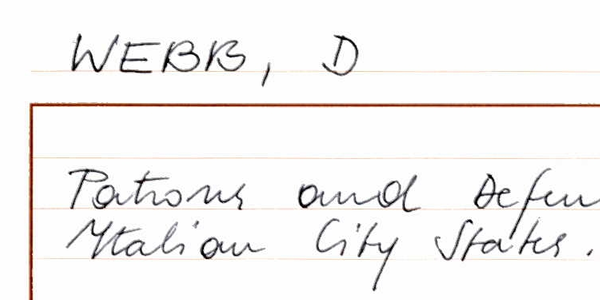 WEBB, D
Patrons and Defen
Italian City States.